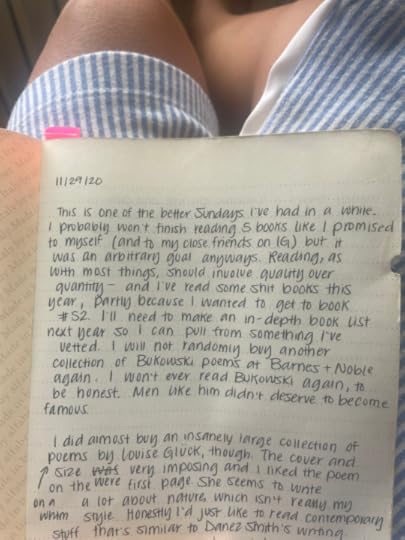 11/29/20
This is one of the better Sundays I've had in a while.
I probably won't finish reading 5 books like I promised
to myself (and to my close friends on IG) but it
was an arbitrary goal anyways. Reading, as
with most things, should involve quality over
quantity- and I've read some shit books this
year, partly because I wanted to get to book
#52. I'll need to make an in-depth book list
next year so I can pull from something I've
vetted. I will not randomly buy another
collection of Bukowski poems at Barnes + Noble
again. I won't ever read Bukowski again, to
be honest. Men like him didn't deserve to become
famous.
I did almost buy an insanely large collection of
poems by Louise Glück, though. The cover and
size was were very imposing and I liked the poem
on the first page. She seems to write
on a whim a lot about nature, which isn't really my
style. Honestly I'd just like to read contemporary
stuff that's similar to Danez Smith's writing.